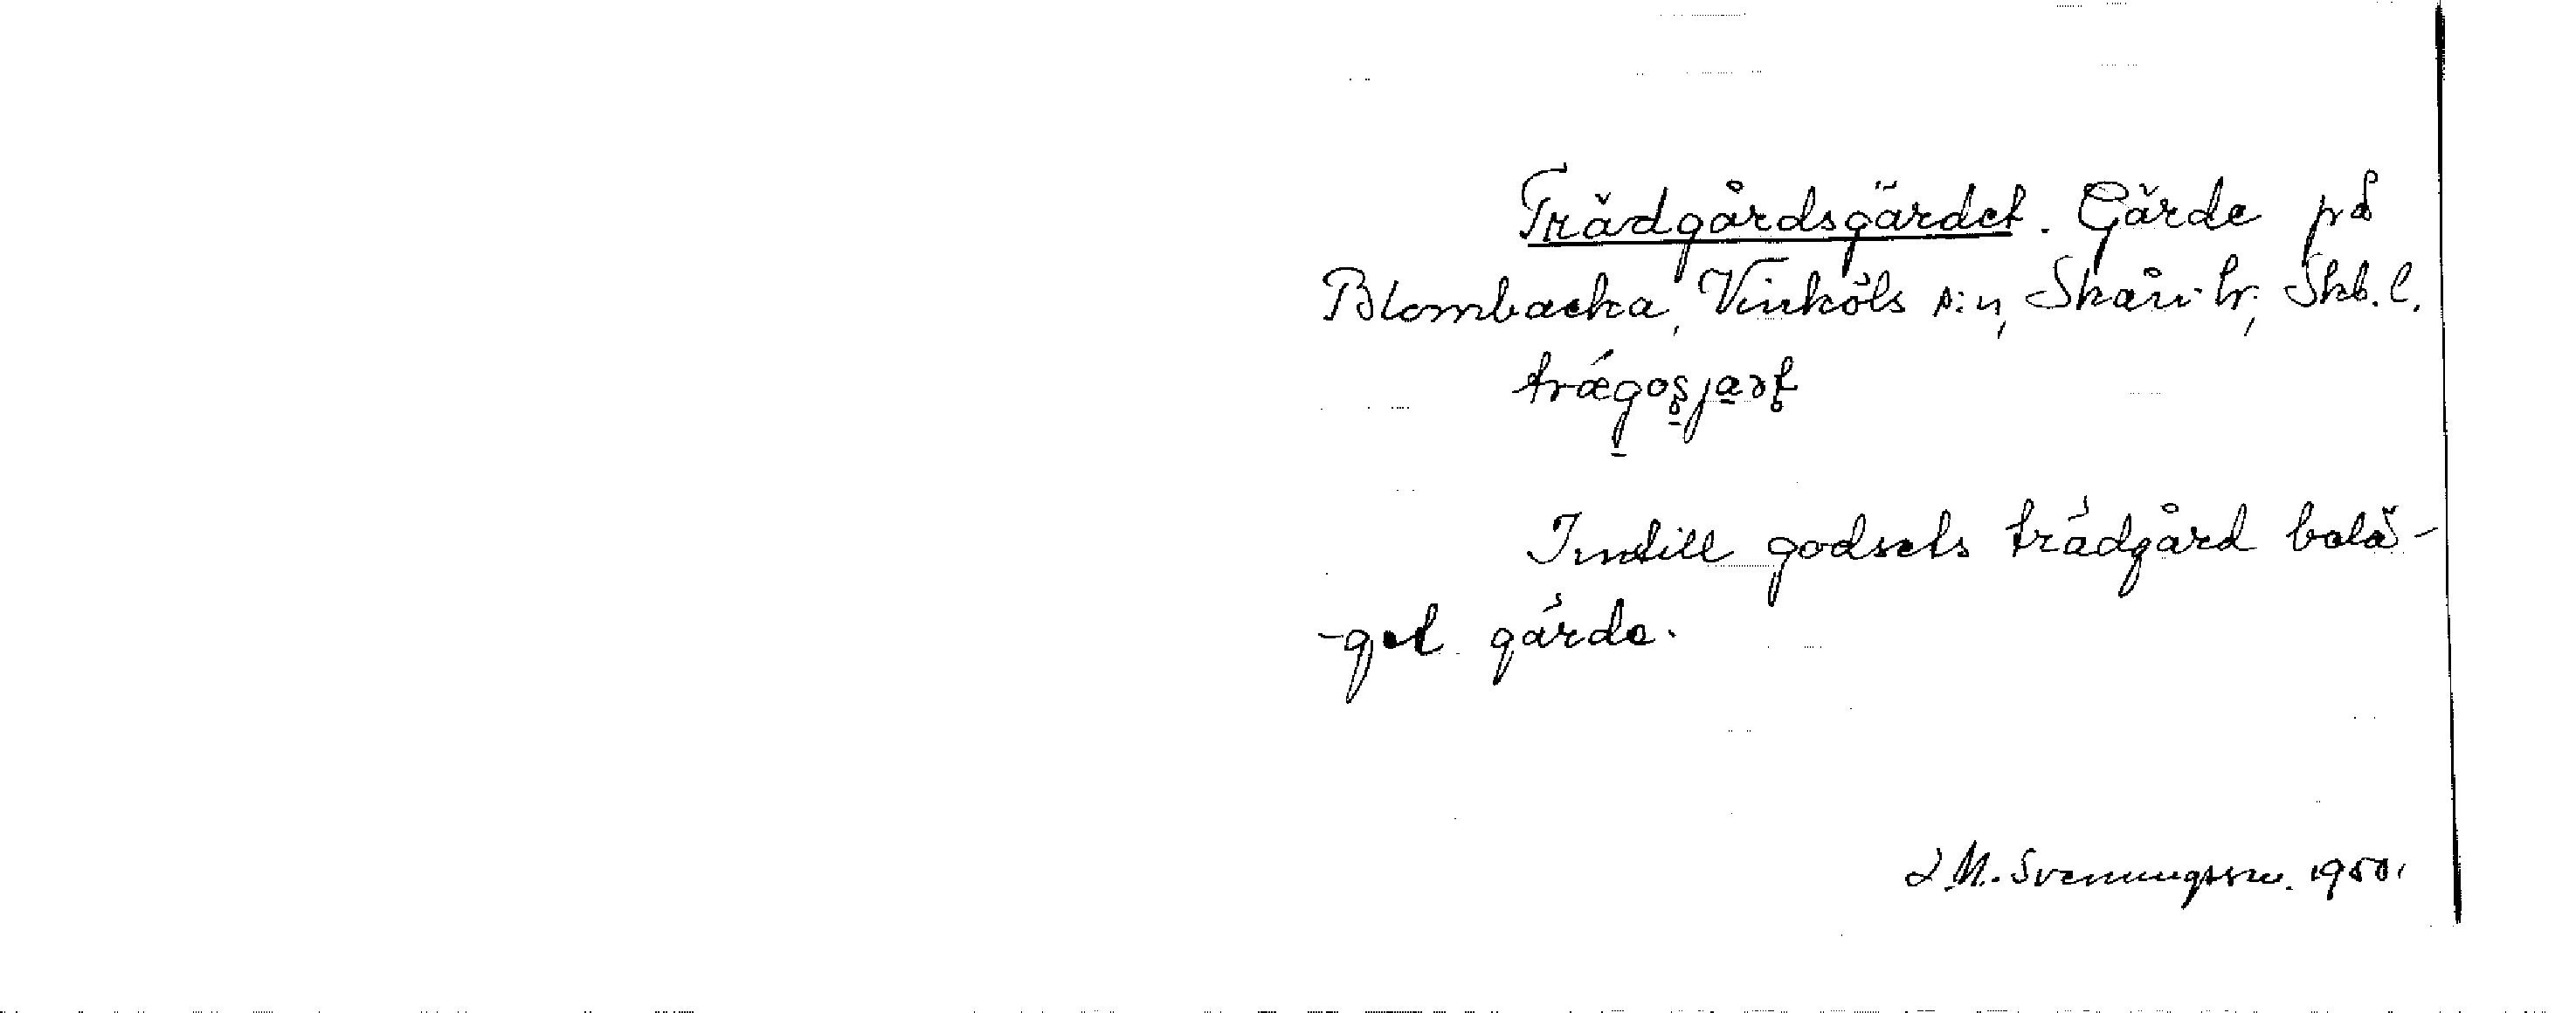 Trädgårdsgärdet. Gärde på
Blombacka, Vinköls s:n, Skån. hr, Skb. l.
Intill godsets trädgård belä-
-get gärde.
M. Svenungsson. 1950.